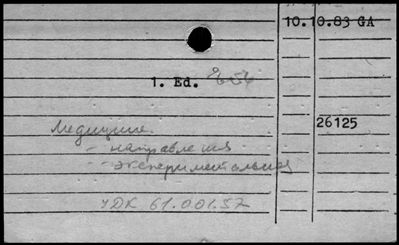 10.10.83 GA
1. Ed.
26125
Медицине
- направления
- экспериментальная
УДК 61.001.57